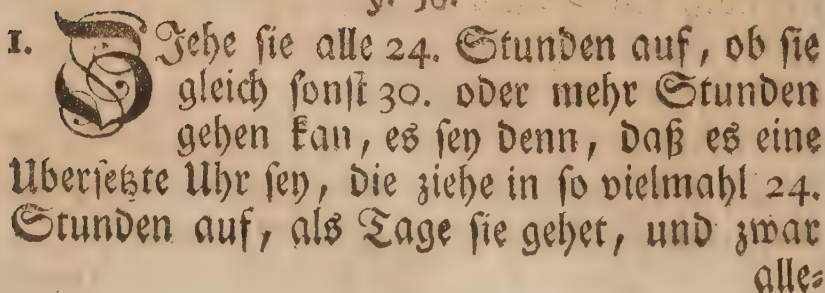 1. ZJehe sie alle 24. Stunden auf, ob sie
gleich sonst 30. oder mehr Stunden
gehen kan, es sey denn, daß es eine
Ubersetzte Uhr sey, die ziehe in so vielmahl 24.
Stunden auf, als Tage sie gehet, und zwar
alle=